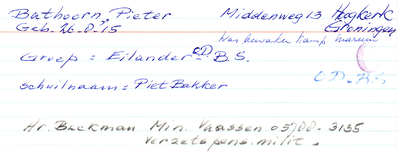 Bathoorn, Pieter Middenweg 13 Hogkerk
Geb. 26.8.'15 Groningen
Was bewaker kamp marum
Groep = Eilander O.D. - B.S.
O.D. - B.S.
schuilnaam = Piet Bakker
Hr. Beckman Min. Vaassen 05700 - 3155
Verzetspens. milit.